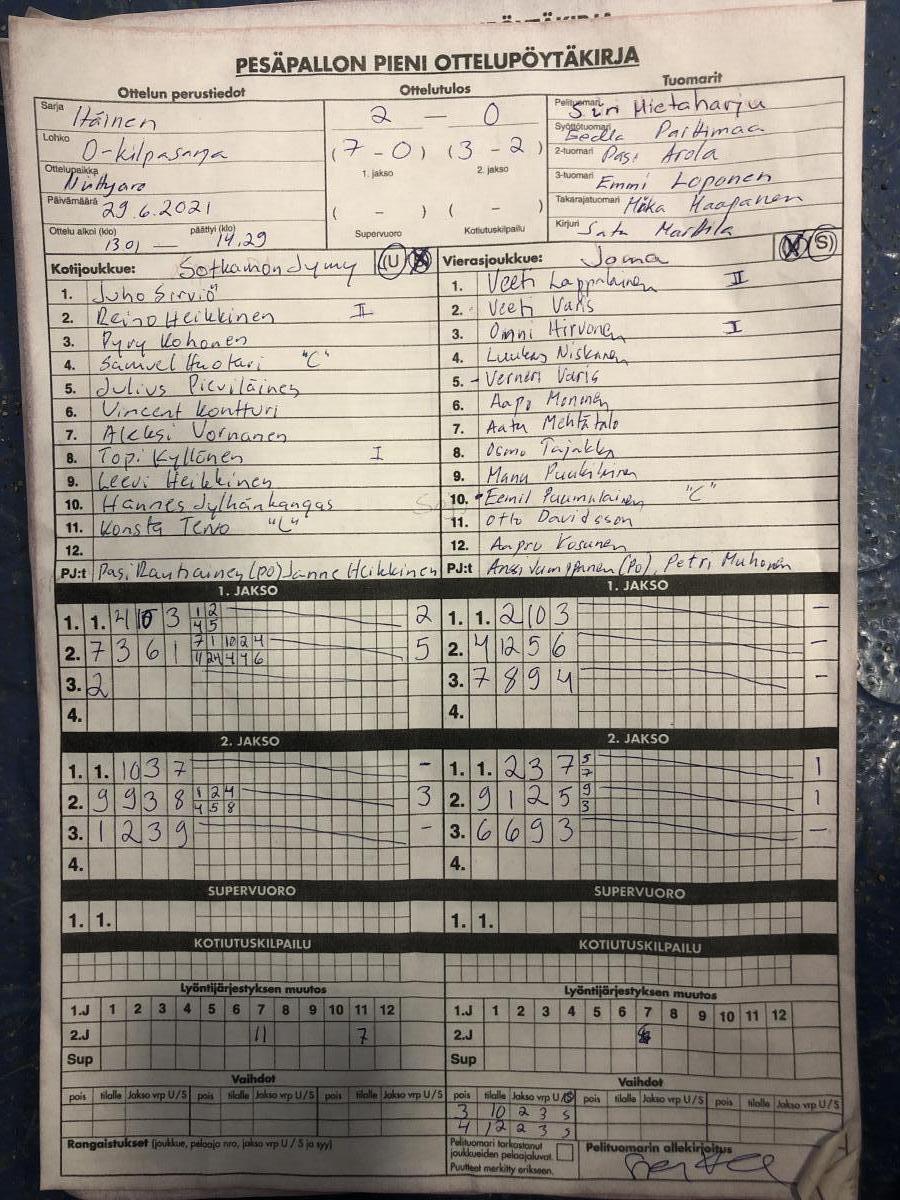 PESÄPALLON PIENI OTTELUPÖYTÄKIRJA
Ottelun perustiedot
Sarja Itäinen
Lohko D-kilpasarja
Ottelupaikka
Päivämäärä 29.6.2021
Ottelu alkoi (klo) 13.01 — päättyi (klo) 14.29
Ottelutulos
2 — 0
(7 - 0) (3 - 2)
1. jakso 2. jakso
( - ) ( - )
Supervuoro Kotiutuskilpailu
Tuomarit
Pelituomari Siri Mietaharju
Syöttötuomari Parttimaa
2-tuomari Pasi Arola
3-tuomari Emmi Loponen
Takarajatuomari Mika Haapanen
Kirjuri Satu Marttila
Kotijoukkue: Sotkamon Jymy U
1. Juho Sirviö
2. Reino Heikkinen II
3. Pyry Kohonen
4. Samuel Huotari "C"
5. Julius Pieviläinen
6. Vincent Kontturi
7. Aleksi Vornanen
8. Topi Kyllönen I
9. Leevi Heikkinen
10. Hannes Jylhänkangas
11. Konsta Tervo "L"
12.
PJ:t Pasi Rautiainen (PO) Janne Heikkinen
Vierasjoukkue: Joma S
1. Veeti Lappalainen II
2. Veeti Varis
3. Onni Hirvonen I
4. Luukas Niskanen
5. Verneri Varis
6. Aapo Mononen
7. Aatu Mehtätalo
8. Osmo
9. Manu
10. Eemil Puumalainen "C"
11. Otto Davidsson
12. Aapro Kosunen
PJ:t Anssi (PO), Petri Muhonen
1. JAKSO
1. 1. 4 10 3 1 2 2
4 5
2. 7 3 6 1 7 1 10 2 4 5
3. 2
4.
1. JAKSO
1. 1. 2 10 3 –
2. 4 12 5 6 –
3. 7 8 9 4 –
4.
2. JAKSO
1. 1. 10 3 7 –
2. 9 9 3 8 1 2 4 3
4 5 8
3. 1 2 3 9 –
4.
2. JAKSO
1. 1. 2 3 7 5 1
7
2. 9 1 2 5 9 1
3
3. 6 6 9 3 –
4.
SUPERVUORO
1. 1.
SUPERVUORO
1. 1.
KOTIUTUSKILPAILU
KOTIUTUSKILPAILU
Lyöntijärjestyksen muutos
1.J 1 2 3 4 5 6 7 8 9 10 11 12
2.J 11 7
Sup
Lyöntijärjestyksen muutos
1.J 1 2 3 4 5 6 7 8 9 10 11 12
2.J
Sup
Vaihdot
pois tilalle Jakso vrp U/S pois tilalle Jakso vrp U/S pois tilalle Jakso vrp U/S
Vaihdot
pois tilalle Jakso vrp U/S pois tilalle Jakso vrp U/S pois tilalle Jakso vrp U/S
3 10 2 3 S
4 12 2 3 S
Rangaistukset (joukkue, pelaaja nro, jakso vrp U / S ja syy)
Pelituomari tarkastanut
joukkueiden pelaajaluvat.
Puutteet merkitty erikseen.
Pelituomarin allekirjoitus